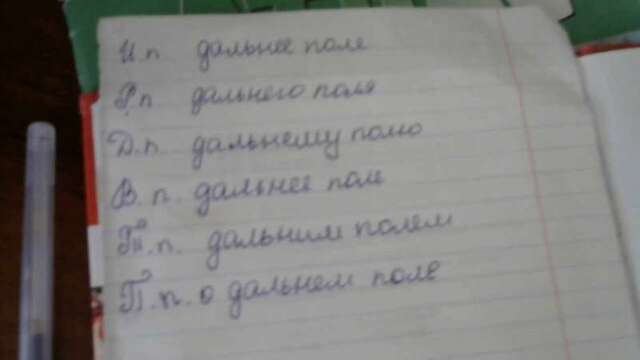 И.п дальнее поле
Р.п дальнего поля
Д.п. дальнему полю
В.п. дальнее поле
Т.п. дальним полем
П.п. о дальнем поле